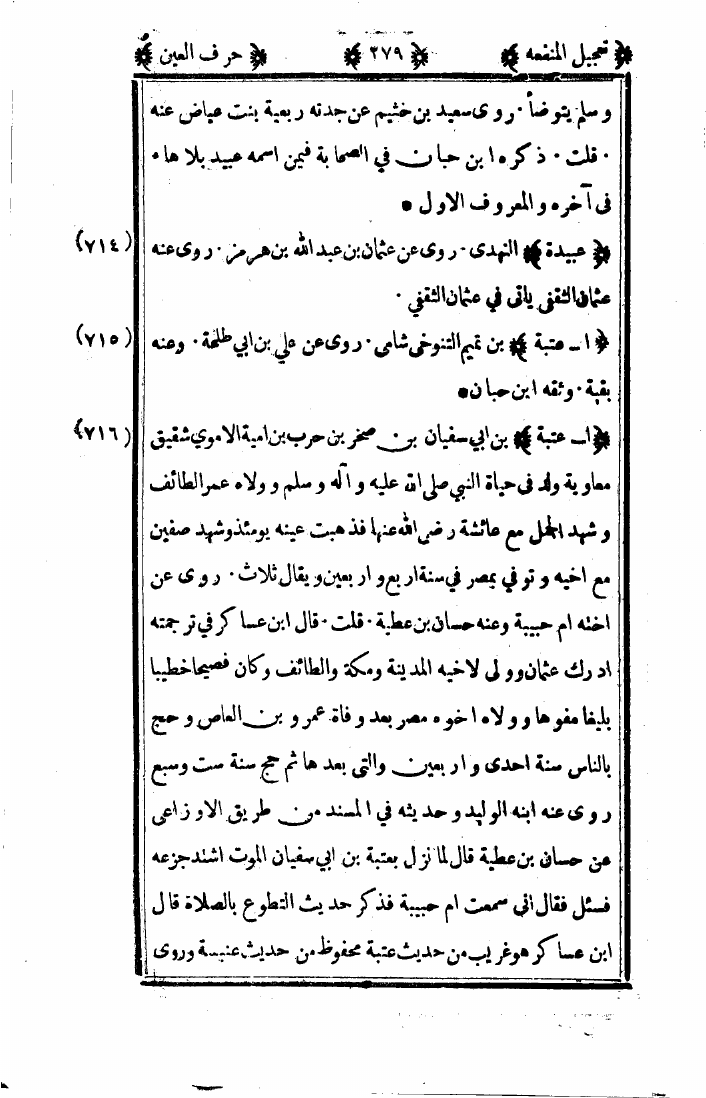 ﴿ تعجيل المنفعه ﴾ ﴿ ٢٧٩ ﴾ ﴿ حرف العين ﴾
وسلم يتوضأ · روى سعيد بن خثيم عن جدته ربعية بنت عياض عنه
· قلت · ذكره ابن حبان في الصحابة فيمن اسمه عبيد بلا هاء
فى آخره والمعروف الاول •
﴿ عبيدة ﴾ النهدى · روى عن عثمان بن عبد الله بن هرمز · روى عنه (٧١٤)
عثمان الثقفى ياتى في عثمان الثقفي ·
﴿ ا ـ عتبة ﴾ بن تميم التنوخى شامى · روى عن علي بن ابي طلحة · وعنه (٧١٥)
بقية · وثقه ابن حبان •
﴿ ا ـ عتبة ﴾ بن ابي سفيان بن صخر بن حرب بن امية الاموي شقيق (٧١٦)
معاوية ولد فى حياة النبي صلى الله عليه وآله وسلم وولاه عمر الطائف
وشهد الجمل مع عائشة رضى الله عنها فذهبت عينه يومئذ وشهد صفين
مع اخيه وتوفي بمصر في سنة اربع واربعين ويقال ثلاث · روى عن
اخته ام حبيبة وعنه حسان بن عطية · قلت · قال ابن عساكر في ترجمته
ادرك عثمان وولى لاخيه المدينة ومكة والطائف وكان فصيحا خطيبا
بليغا مفوها وولاه اخوه مصر بعد وفاة عمرو بن العاص وحج
بالناس سنة احدى واربعين والتى بعدها ثم حج سنة ست وسبع
روى عنه ابنه الوليد وحديثه في المسند من طريق الاوزاعى
عن حسان بن عطية قال لما نزل بعتبة بن ابي سفيان الموت اشتد جزعه
فسئل فقال انى سمعت ام حبيبة فذكر حديث التطوع بالصلاة قال
ابن عساكر هو غريب من حديث عتبة محفوظ من حديث عنبسة وروى